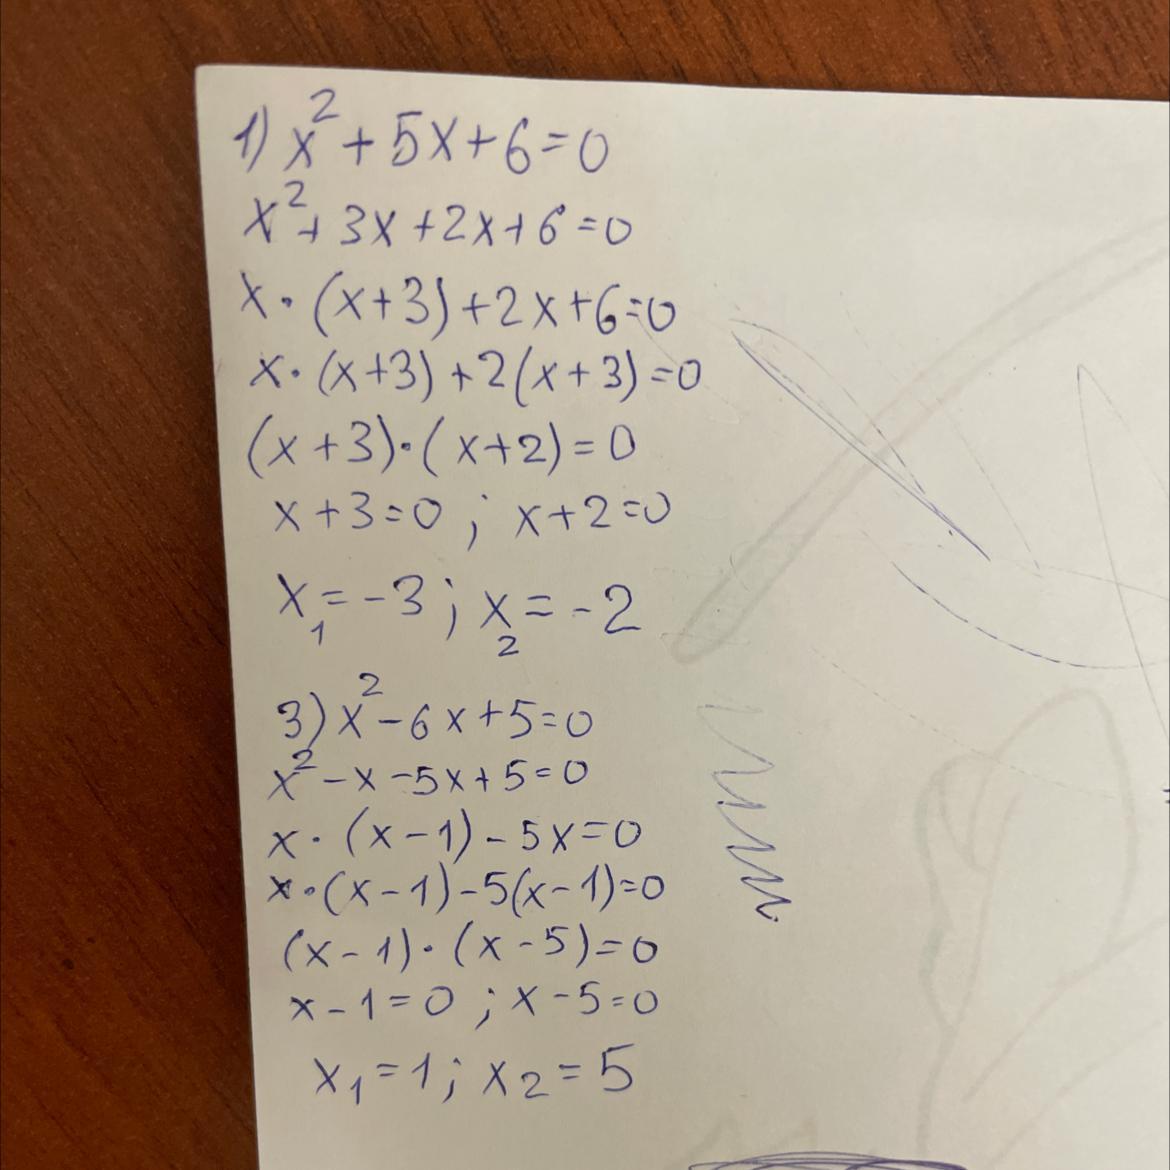 1) x² + 5x + 6 = 0
x² + 3x + 2x + 6 = 0
x · (x + 3) + 2x + 6 = 0
x · (x + 3) + 2(x + 3) = 0
(x + 3) · (x + 2) = 0
x + 3 = 0 ; x + 2 = 0
x₁ = -3 ; x₂ = -2
3) x² - 6x + 5 = 0
x² - x - 5x + 5 = 0
x · (x - 1) - 5x = 0
x · (x - 1) - 5(x - 1) = 0
(x - 1) · (x - 5) = 0
x - 1 = 0 ; x - 5 = 0
x₁ = 1 ; x₂ = 5